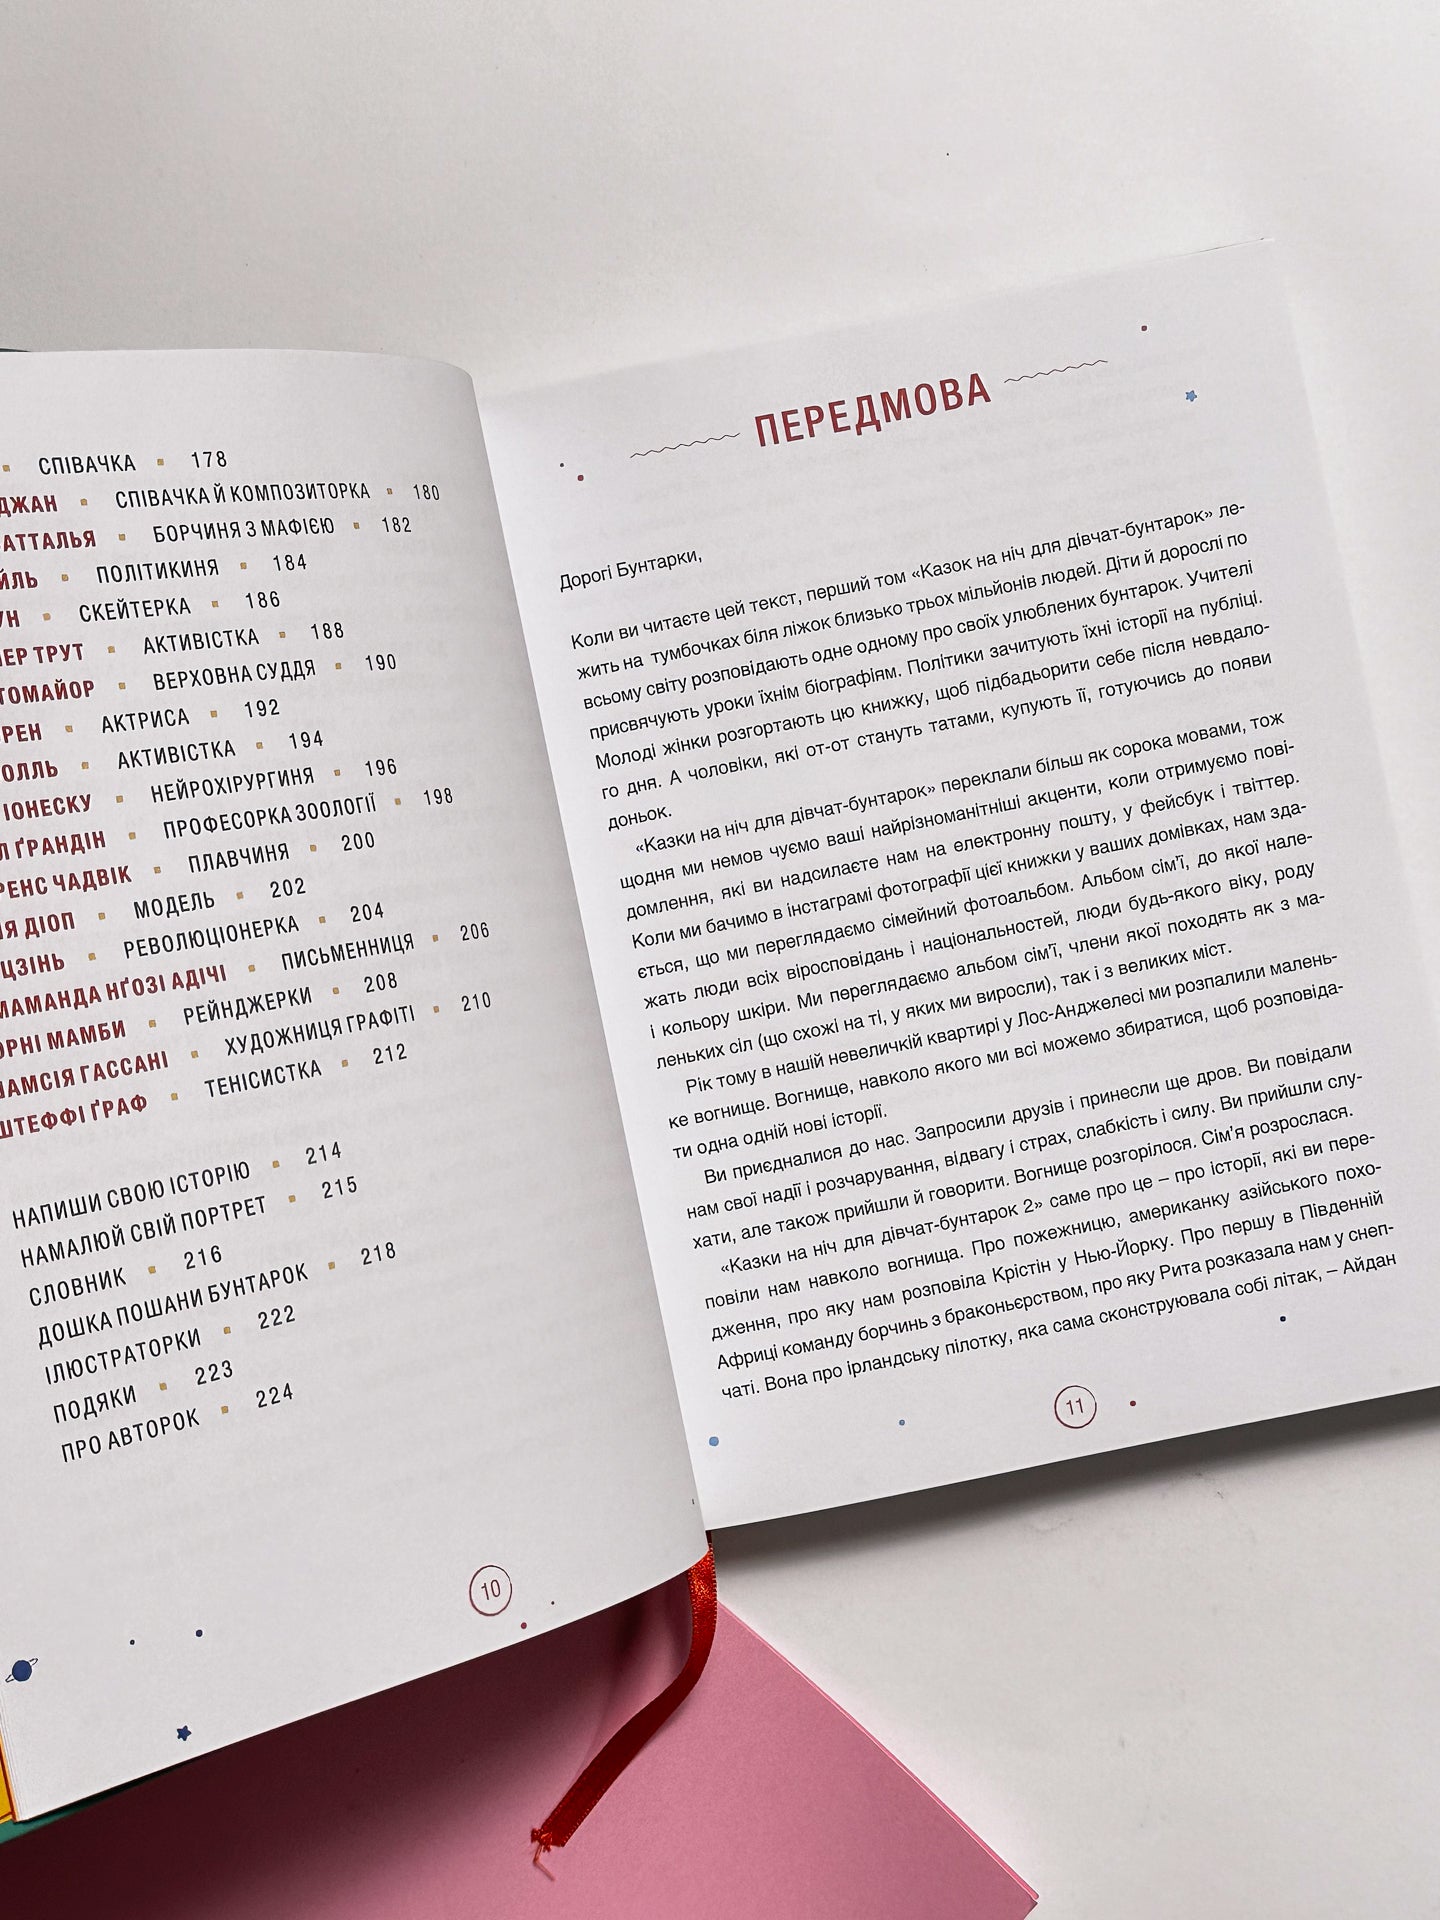 СПІВАЧКА ▪ 178
ДЖАН ▪ СПІВАЧКА Й КОМПОЗИТОРКА ▪ 180
АТТАЛЬЯ ▪ БОРЧИНЯ З МАФІЄЮ ▪ 182
ЙЛЬ ▪ ПОЛІТИКИНЯ ▪ 184
УН ▪ СКЕЙТЕРКА ▪ 186
НЕР ТРУТ ▪ АКТИВІСТКА ▪ 188
ТОМАЙОР ▪ ВЕРХОВНА СУДДЯ ▪ 190
РЕН ▪ АКТРИСА ▪ 192
ОЛЛЬ ▪ АКТИВІСТКА ▪ 194
ІОНЕСКУ ▪ НЕЙРОХІРУРГИНЯ ▪ 196
Л ҐРАНДІН ▪ ПРОФЕСОРКА ЗООЛОГІЇ ▪ 198
РЕНС ЧАДВІК ▪ ПЛАВЧИНЯ ▪ 200
ІЯ ДІОП ▪ МОДЕЛЬ ▪ 202
ЦЗІНЬ ▪ РЕВОЛЮЦІОНЕРКА ▪ 204
МАМАНДА НҐОЗІ АДІЧІ ▪ ПИСЬМЕННИЦЯ ▪ 206
ОРНІ МАМБИ ▪ РЕЙНДЖЕРКИ ▪ 208
ШАМСІЯ ГАССАНІ ▪ ХУДОЖНИЦЯ ГРАФІТІ ▪ 210
ШТЕФФІ ҐРАФ ▪ ТЕНІСИСТКА ▪ 212
НАПИШИ СВОЮ ІСТОРІЮ ▪ 214
НАМАЛЮЙ СВІЙ ПОРТРЕТ ▪ 215
СЛОВНИК ▪ 216
ДОШКА ПОШАНИ БУНТАРОК ▪ 218
ІЛЮСТРАТОРКИ ▪ 222
ПОДЯКИ ▪ 223
ПРО АВТОРОК ▪ 224
10
ПЕРЕДМОВА
Дорогі Бунтарки,
Коли ви читаєте цей текст, перший том «Казок на ніч для дівчат-бунтарок» ле-
жить на тумбочках біля ліжок близько трьох мільйонів людей. Діти й дорослі по
всьому світу розповідають одне одному про своїх улюблених бунтарок. Учителі
присвячують уроки їхнім біографіям. Політики зачитують їхні історії на публіці.
Молоді жінки розгортають цю книжку, щоб підбадьорити себе після невдало-
го дня. А чоловіки, які от-от стануть татами, купують її, готуючись до появи
доньок.
«Казки на ніч для дівчат-бунтарок» переклали більш як сорока мовами, тож
щодня ми немов чуємо ваші найрізноманітніші акценти, коли отримуємо пові-
домлення, які ви надсилаєте нам на електронну пошту, у фейсбук і твіттер.
Коли ми бачимо в інстаграмі фотографії цієї книжки у ваших домівках, нам зда-
ється, що ми переглядаємо сімейний фотоальбом. Альбом сім'ї, до якої нале-
жать люди всіх віросповідань і національностей, люди будь-якого віку, роду
і кольору шкіри. Ми переглядаємо альбом сім'ї, члени якої походять як з ма-
леньких сіл (що схожі на ті, у яких ми виросли), так і з великих міст.
Рік тому в нашій невеличкій квартирі у Лос-Анджелесі ми розпалили малень-
ке вогнище. Вогнище, навколо якого ми всі можемо збиратися, щоб розповіда-
ти одна одній нові історії.
Ви приєдналися до нас. Запросили друзів і принесли ще дров. Ви повідали
нам свої надії і розчарування, відвагу і страх, слабкість і силу. Ви прийшли слу-
хати, але також прийшли й говорити. Вогнище розгорілося. Сім'я розрослася.
«Казки на ніч для дівчат-бунтарок 2» саме про це – про історії, які ви пере-
повіли нам навколо вогнища. Про пожежницю, американку азійського похо-
дження, про яку нам розповіла Крістін у Нью-Йорку. Про першу в Південній
Африці команду борчинь з браконьєрством, про яку Рита розказала нам у снеп-
чаті. Вона про ірландську пілотку, яка сама сконструювала собі літак, – Айдан
11